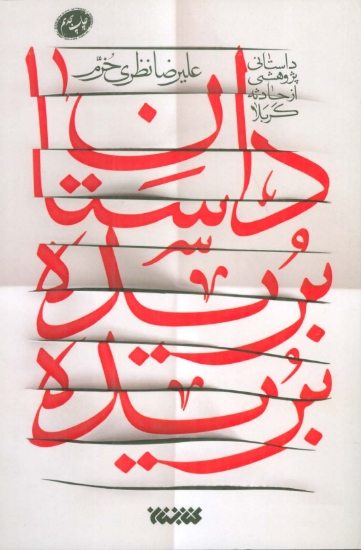 داستانی
پژوهشی
از حادثه
کربلا
علیرضا نظری خُرّم
چاپ
داستان
بُریده
بُریده
کتابستان